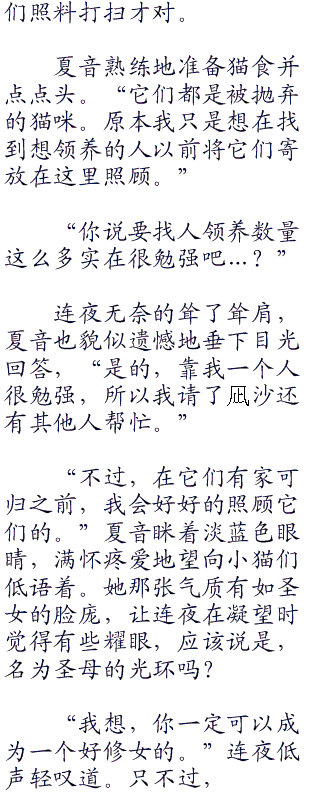 们照料打扫才对。
夏音熟练地准备猫食并
点点头。“它们都是被抛弃
的猫咪。原本我只是想在找
到想领养的人以前将它们寄
放在这里照顾。”
“你说要找人领养数量
这么多实在很勉强吧…？”
连夜无奈的耸了耸肩，
夏音也貌似遗憾地垂下目光
回答，“是的，靠我一个人
很勉强，所以我请了凪沙还
有其他人帮忙。”
“不过，在它们有家可
归之前，我会好好的照顾它
们的。”夏音眯着淡蓝色眼
睛，满怀疼爱地望向小猫们
低语着。她那张气质有如圣
女的脸庞，让连夜在凝望时
觉得有些耀眼，应该说是，
名为圣母的光环吗？
“我想，你一定可以成
为一个好修女的。”连夜低
声轻叹道。只不过，